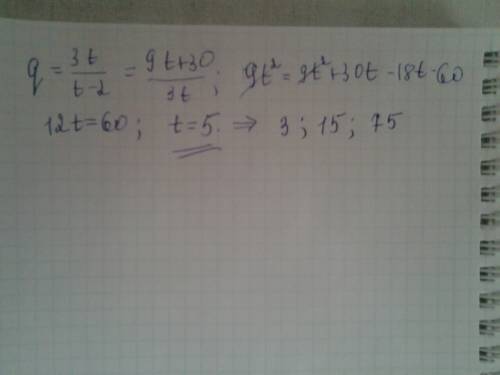 q = 3t/(t-2) = (9t+30)/3t ; 9t² = 9t²+30t-18t-60
12t=60 ; t=5. ⇒ 3 ; 15 ; 75